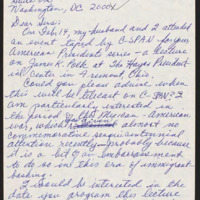 Washington, DC 2000
Dear Sirs:
On Feb. 19, my husband and I attended
an event taped by C-SPAN for your
American Presidents series - a lecture
on James K. Polk at The Hayes President-
ial Center in Fremont, Ohio.
Could you please advise when
this will be on C-SPAN? I
am particularly interested in
the period of the Mexican-American
war, which almost no
commemorative sesquicentennial
attention recently - probably because
it is a bit of an embarrassment
to do so in this era of immigrant
bashing.
I would be interested in the
date you program this lecture